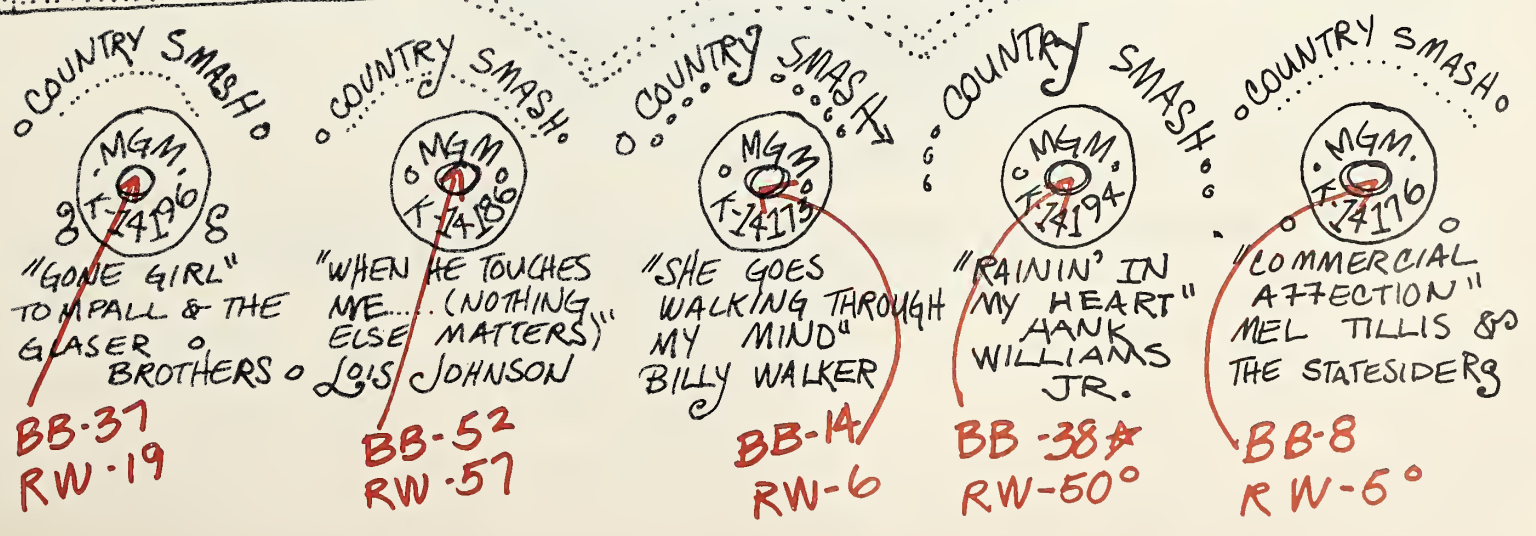 COUNTRY SMASH
MGM
K-14196
"GONE GIRL"
TOMPALL & THE
GLASER
BROTHERS
BB-37
RW-19
COUNTRY SMASH
MGM
K-14186
"WHEN HE TOUCHES
ME.... (NOTHING
ELSE MATTERS)"
LOIS JOHNSON
BB-52
RW-57
COUNTRY SMASH
MGM
K-14173
"SHE GOES
WALKING THROUGH
MY MIND"
BILLY WALKER
BB-14
RW-6
COUNTRY SMASH
MGM
K-14194
"RAININ' IN
MY HEART"
HANK
WILLIAMS
JR.
BB-38☆
RW-50
COUNTRY SMASH
MGM
K-14176
"COMMERCIAL
AFFECTION"
MEL TILLIS &
THE STATESIDERS
BB-8
RW-5